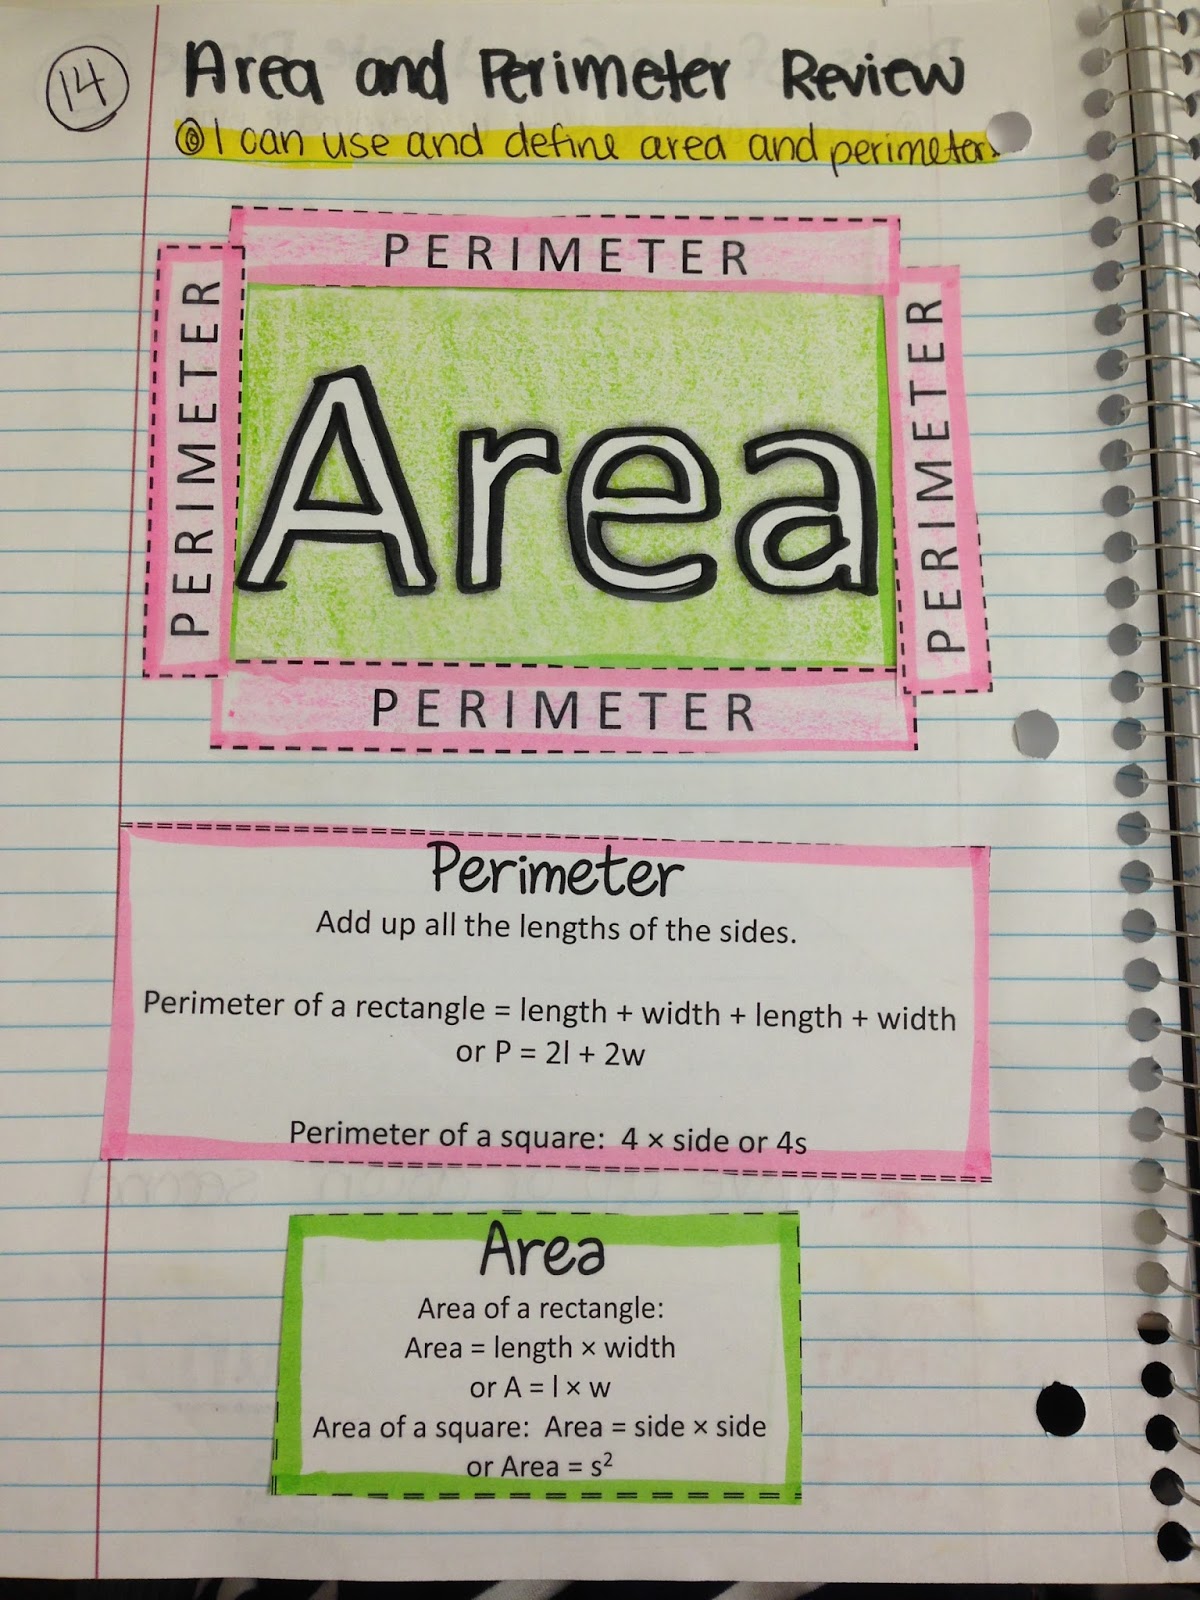 14
Area and Perimeter Review
◎ I can use and define area and perimeter.
PERIMETER
PERIMETER
Area
PERIMETER
PERIMETER
Perimeter
Add up all the lengths of the sides.
Perimeter of a rectangle = length + width + length + width
or P = 2l + 2w
Perimeter of a square: 4 × side or 4s
Area
Area of a rectangle:
Area = length × width
or A = l × w
Area of a square: Area = side × side
or Area = s²